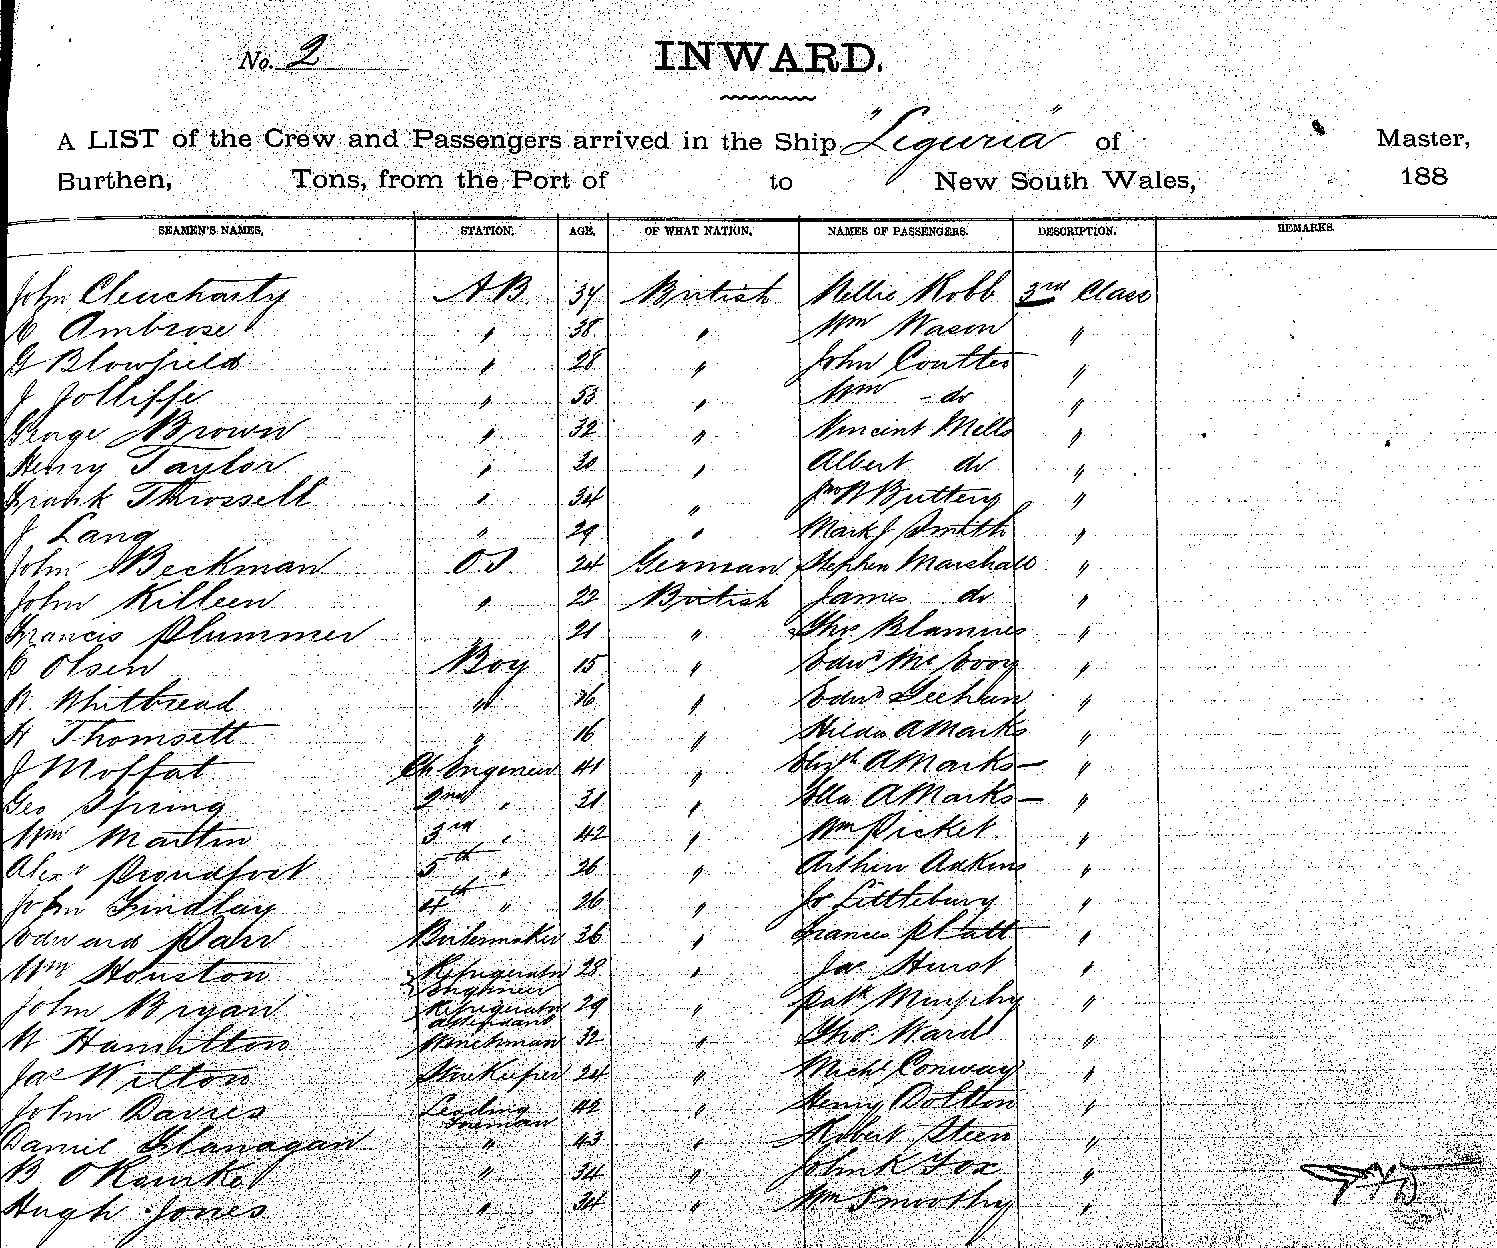 No. 2
INWARD.
A LIST of the Crew and Passengers arrived in the Ship "Liguria" of Master,
Burthen, Tons, from the Port of to New South Wales, 188
SEAMEN'S NAMES. STATION. AGE. OF WHAT NATION. NAMES OF PASSENGERS. DESCRIPTION. REMARKS.
John Clencharty AB 37 British Nellie Robb 3rd Class
C Ambrose " 38 " Wm Wason "
G Blowfield " 28 " John Coulter "
J Jolliffe " 53 " Wm - do "
George Brown " 32 " Vincent Mells "
Henry Taylor " 30 " Albert do "
Frank Throssell " 34 " Jno R Buttery "
J Lang " 29 " Mark J Smith "
John Beckman OS 24 German Stephen Marshall "
John Killeen " 22 British James do "
Francis Plummer 21 " Thos Blamires "
C Olsen Boy 15 " Edwd Mc Evoy "
W Whitbread " 16 " Edwd Geehan "
H Thomsett " 16 " Hilda A Marks "
J Moffat Ch Engineer 41 " Elizth A Marks — "
Geo Spring 2nd " 31 " Ella A Marks — "
Wm Martin 3rd " 42 " Wm Picket "
Alexr Proudfoot 5th " 26 " Arthur Adkins "
John Findlay 4th " 26 " Jo Littlebury "
Edward Parr Boilermaker 36 " Frances Platt "
Wm Houston Refrigerator Engineer 28 " Jas Hurst "
John Bryan Refrigerator attendant 29 " Patk Murphy "
W Hamilton Winchman 32 " Thos Ward "
Jas Wilton Storekeeper 24 " Michl Conway "
John Davies Leading Fireman 42 " Henry Dolton "
Daniel Flanagan " 43 " Robert Steen "
B O'Rourke " 34 " John K Fox "
Hugh Jones " 34 " Wm Smoothy "